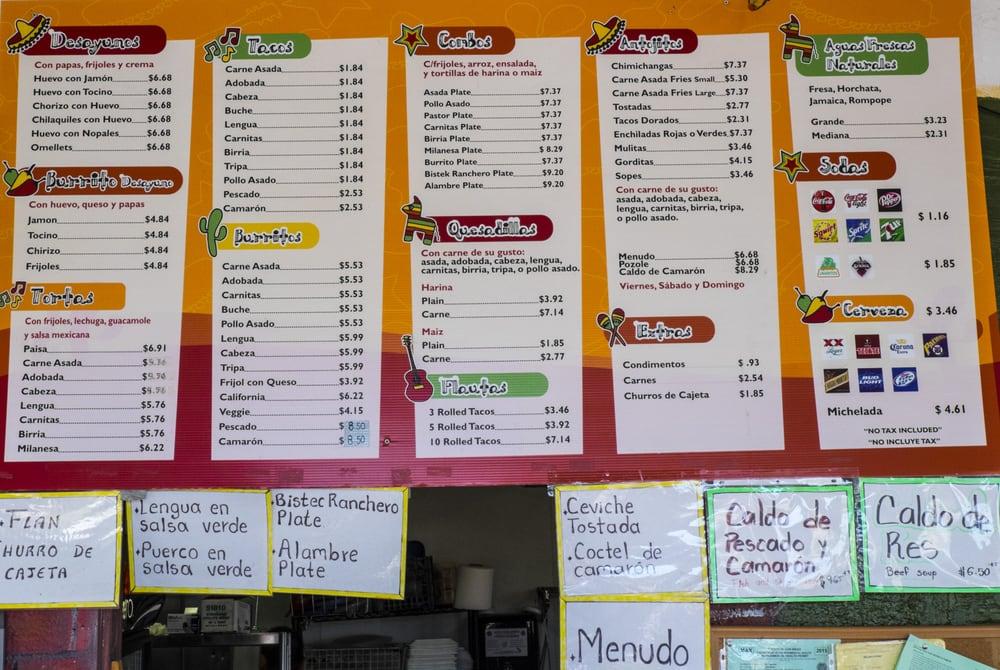 Desayunos
Con papas, frijoles y crema
Huevo con Jamón $6.68
Huevo con Tocino $6.68
Chorizo con Huevo $6.68
Chilaquiles con Huevo $6.68
Huevo con Nopales $6.68
Omellets $6.68
Burrito Desayuno
Con huevo, queso y papas
Jamon $4.84
Tocino $4.84
Chirizo $4.84
Frijoles $4.84
Tortas
Con frijoles, lechuga, guacamole
y salsa mexicana
Paisa $6.91
Carne Asada
Adobada
Cabeza
Lengua $5.76
Carnitas $5.76
Birria $5.76
Milanesa $6.22
Tacos
Carne Asada $1.84
Adobada $1.84
Cabeza $1.84
Buche $1.84
Lengua $1.84
Carnitas $1.84
Birria $1.84
Tripa $1.84
Pollo Asado $1.84
Pescado $2.53
Camarón $2.53
Burritos
Carne Asada $5.53
Adobada $5.53
Carnitas $5.53
Buche $5.53
Pollo Asado $5.53
Lengua $5.99
Cabeza $5.99
Tripa $5.99
Frijol con Queso $3.92
California $6.22
Veggie $4.15
Pescado $8.50
Camarón $8.50
Combos
C/frijoles, arroz, ensalada,
y tortillas de harina o maiz
Asada Plate $7.37
Pollo Asado $7.37
Pastor Plate $7.37
Carnitas Plate $7.37
Birria Plate $7.37
Milanesa Plate $8.29
Burrito Plate $7.37
Bistek Ranchero Plate $9.20
Alambre Plate $9.20
Quesadillas
Con carne de su gusto:
asada, adobada, cabeza, lengua,
carnitas, birria, tripa, o pollo asado.
Harina
Plain $3.92
Carne $7.14
Maiz
Plain $1.85
Carne $2.77
Flautas
3 Rolled Tacos $3.46
5 Rolled Tacos $3.92
10 Rolled Tacos $7.14
Antojitos
Chimichangas $7.37
Carne Asada Fries Small $5.30
Carne Asada Fries Large $7.37
Tostadas $2.77
Tacos Dorados $2.31
Enchiladas Rojas o Verdes $7.37
Mulitas $3.46
Gorditas $4.15
Sopes $3.46
Con carne de su gusto:
asada, adobada, cabeza,
lengua, carnitas, birria, tripa,
o pollo asado.
Menudo $6.68
Pozole $6.68
Caldo de Camarón $8.29
Viernes, Sábado y Domingo
Extras
Condimentos $ .93
Carnes $2.54
Churros de Cajeta $1.85
Aguas Frescas
Naturales
Fresa, Horchata,
Jamaica, Rompope
Grande $3.23
Mediana $2.31
Sodas
Coca-Cola Coca-Cola light Dr Pepper
Squirt Sprite
$ 1.16
Jarritos
$ 1.85
Cerveza $ 3.46
XX Lager TECATE Corona Extra PACIFICO
BUD LIGHT Lite
Michelada $ 4.61
"NO TAX INCLUDED"
"NO INCLUYE TAX"
•FLAN
CHURRO DE
CAJETA
•Lengua en
salsa verde
•Puerco en
salsa verde
•Bistec Ranchero
Plate
•Alambre
Plate
•Ceviche
Tostada
•Coctel de
camarón
•Menudo
Caldo de
Pescado y
Camarón
Caldo de
Res
Beef soup $6.50